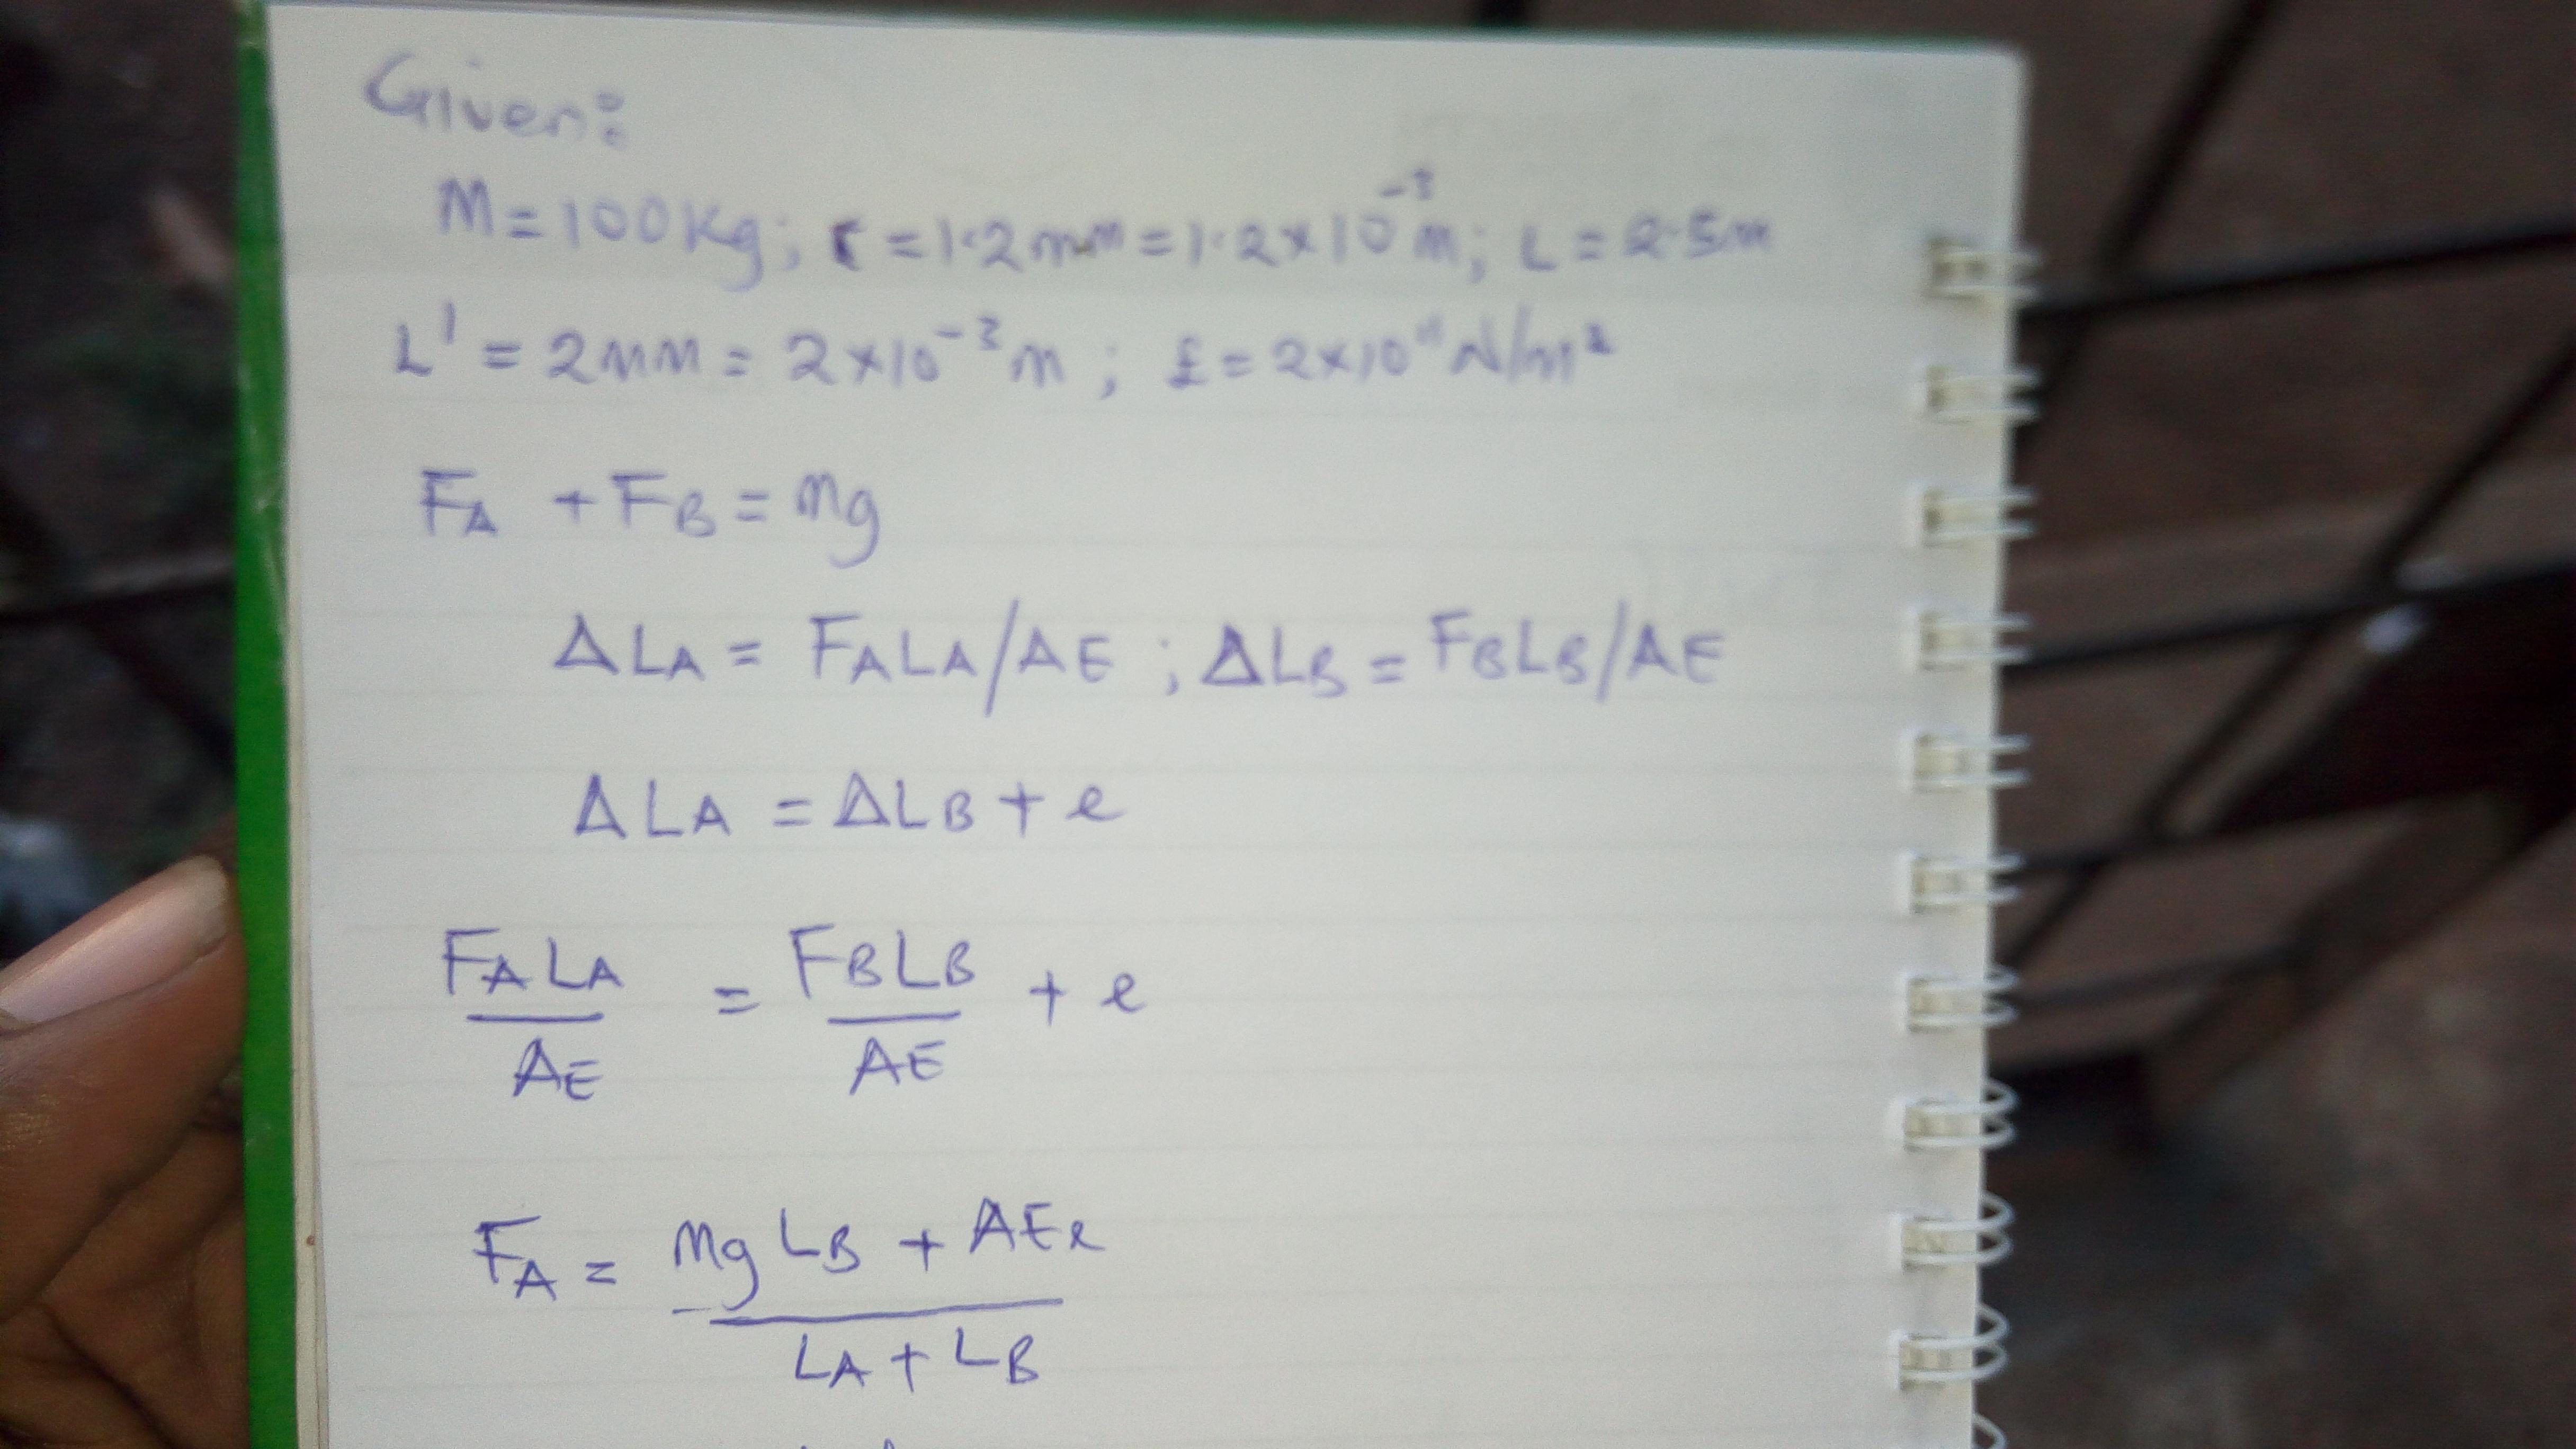 Given:
M = 100Kg; r = 1.2mm = 1.2 × 10⁻³m; L = 2.5m
L' = 2mm = 2 × 10⁻³m; E = 2 × 10¹¹ N/m²
F_A + F_B = mg
ΔL_A = F_A L_A/AE ; ΔL_B = F_B L_B/AE
ΔL_A = ΔL_B + e
F_A L_A / AE = F_B L_B / AE + e
F_A = mg L_B + AEe / L_A + L_B